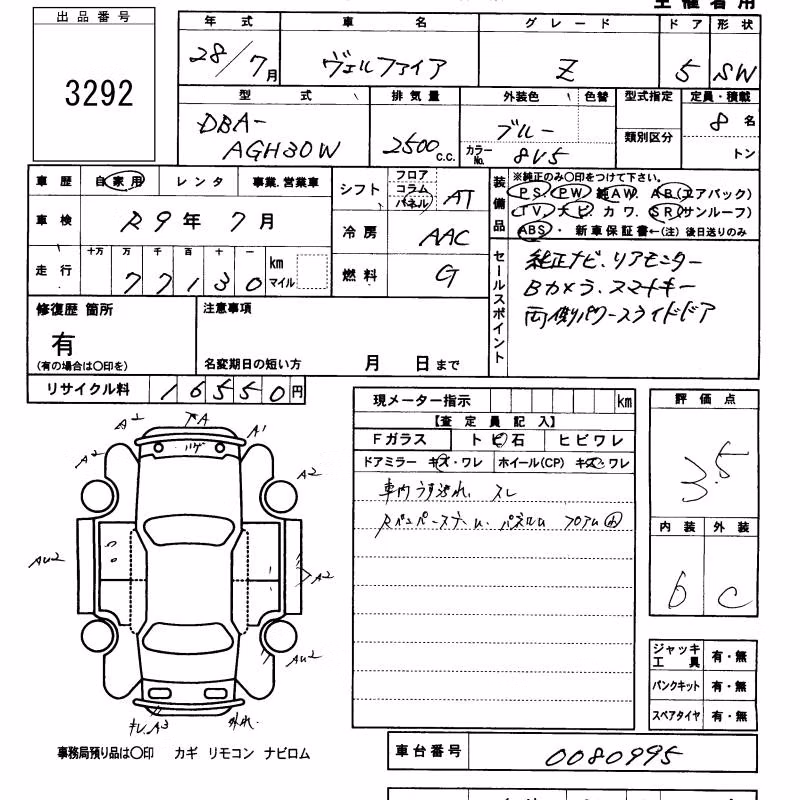 出品番号
3292
年式
28/7月
車名
ヴェルファイア
グレード
Z
ドア
5
形状
SW
型式
DBA-
AGH30W
排気量
2500c.c.
外装色
色替
ブルー
カラーNo.
8V5
型式指定
類別区分
定員・積載
8名
トン
車歴 自家用 レンタ 事業.営業車
車検 R9年7月
走行 十万 万 千 百 十 一
77130 km マイル
シフト フロア コラム パネル AT
冷房 AAC
燃料 G
装備品
※純正のみ〇印をつけて下さい。
PS PW 純AW. AB(エアバック)
TV. ナビ カワ. SR(サンルーフ)
ABS・ 新車保証書←(注)後日送りのみ
セールスポイント
純正ナビ、リアモニター
Bカメラ、スマートキー
両側パワースライドドア
修復歴 箇所
有
(有の場合は〇印を)
注意事項
名変期日の短い方 月 日まで
リサイクル料 16550円
現メーター指示 km
【査定員記入】
Fガラス トビ石 ヒビワレ
ドアミラー キズ・ワレ ホイール(CP) キズ・ワレ
車内うす汚れ、スレ
評価点
3.5
内装 外装
b C
ジャッキ 工具 有・無
パンクキット 有・無
スペアタイヤ 有・無
A2
A1
A2
A2
AU2
A2
AU2
キレ.A3
外れ.
事務局預り品は〇印 カギ リモコン ナビロム
車台番号 0080995